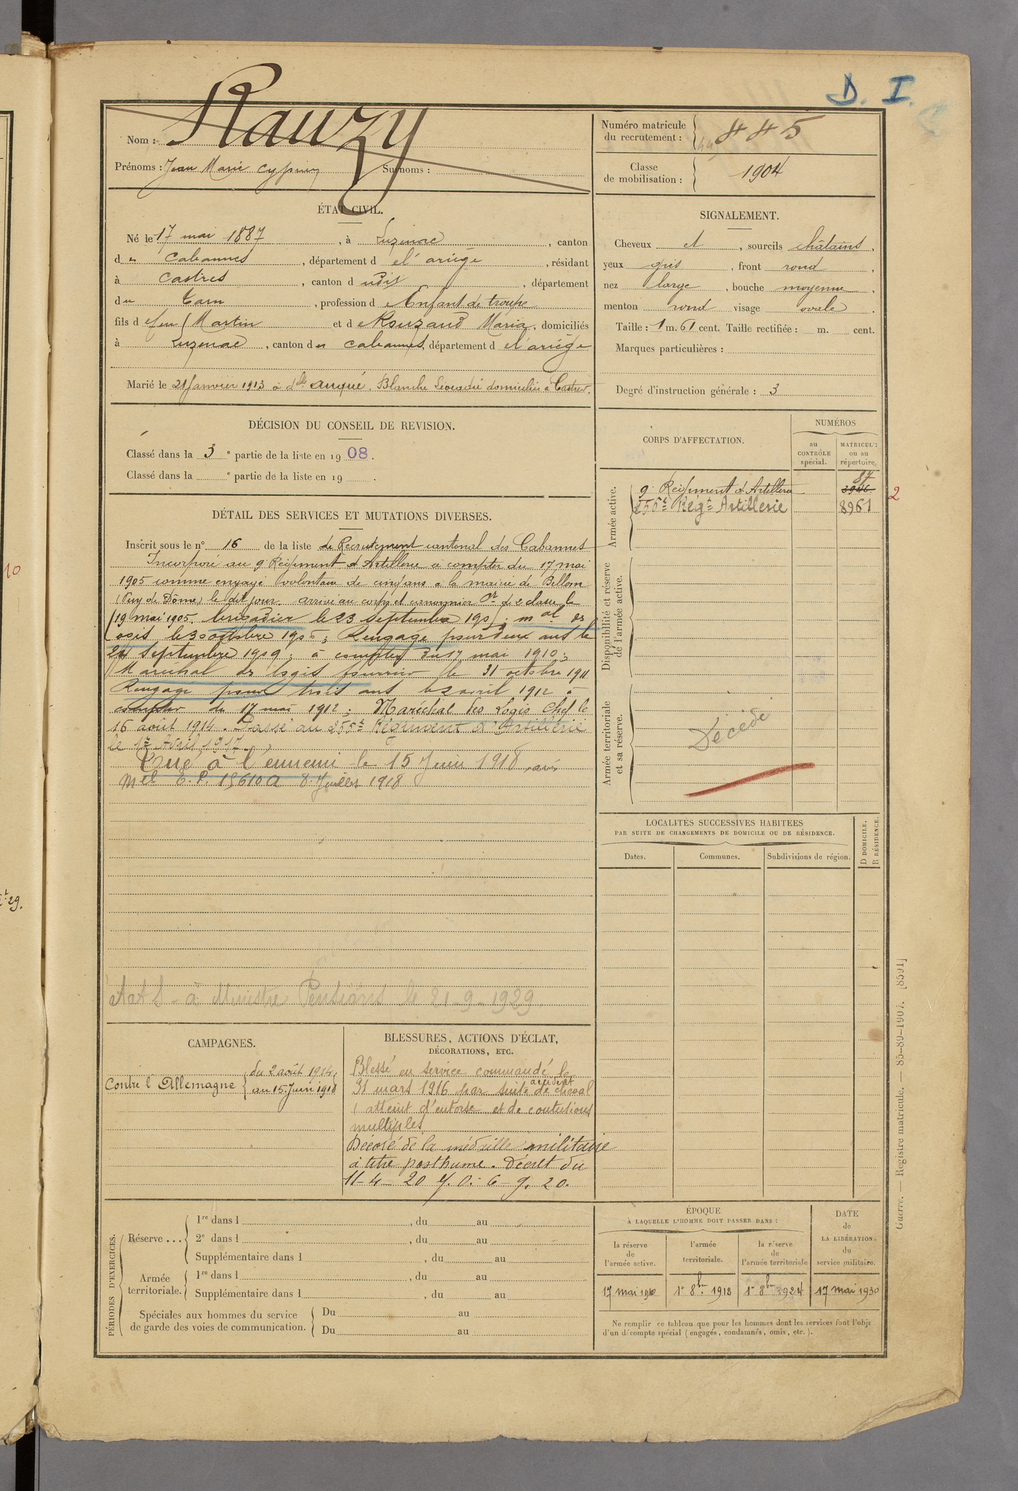 D. I.
Nom : Rauzy
Prénoms : Jean Marie Cyprien Surnoms :
Numéro matricule du recrutement : 445
Classe de mobilisation : 1904
ÉTAT CIVIL.
Né le 17 mai 1887, à Luzenac, canton
d es Cabannes, département d e l'ariège, résidant
à Castres, canton d udit, département
du Tarn, profession d Enfant de troupe
fils d e feu Martin et d e Rouzaud Maria, domiciliés
à Luzenac, canton d es Cabannes, département d e l'ariège
Marié le 21 Janvier 1913 à dlle auqué, Blanche domiciliée à Castres.
SIGNALEMENT.
Cheveux et, sourcils châtains,
yeux gris, front rond,
nez large, bouche moyenne,
menton rond visage ovale
Taille : 1 m. 61 cent. Taille rectifiée : m. cent.
Marques particulières :
Degré d'instruction générale : 3
DÉCISION DU CONSEIL DE REVISION.
Classé dans la 3e partie de la liste en 1908.
Classé dans la e partie de la liste en 19 .
CORPS D'AFFECTATION.
NUMÉROS
au CONTRÔLE spécial.
MATRICULE ou au répertoire.
Armée active.
9e Régiment d'Artillerie
255e Régt Artillerie 8961
2
Disponibilité et réserve de l'armée active.
Armée territoriale et sa réserve.
Décédé
DÉTAIL DES SERVICES ET MUTATIONS DIVERSES.
Inscrit sous le n° 16 de la liste de Recrutement cantonal des Cabannes
Incorporé au 9e Régiment d'Artillerie à compter du 17 mai
1905 comme engagé volontaire de cinq ans à la mairie de Billom
(Puy de Dôme) le dit jour. arrivé au corps et canonnier de 2e classe le
19 mai 1905. brigadier le 23 septembre 190 ; mal des
logis le 30 octobre 1906 ; Rengagé pour deux ans le
24 Septembre 1909 ; à compter du 17 mai 1910 ;
Maréchal des logis fourrier le 31 octobre 1911
Rengagé pour trois ans le avril 1912 à
compter du 17 mai 1912 ; Maréchal des Logis Chef le
16 août 1914. Passé au 255e Régiment d'Artillerie
le 1er Avril 1917.
Tué à l'ennemi le 15 Juin 1918 avis
Mel E.P. 15610A 8 Juillet 1918
à Ministre Pensions le 21-9-1929
LOCALITÉS SUCCESSIVES HABITÉES
PAR SUITE DE CHANGEMENTS DE DOMICILE OU DE RÉSIDENCE.
Dates. Communes. Subdivisions de région. D DOMICILE. R RÉSIDENCE.
CAMPAGNES.
Contre l'Allemagne { du 2 août 1914,
au 15 Juin 1918
BLESSURES, ACTIONS D'ÉCLAT,
DÉCORATIONS, ETC.
Blessé en service commandé le
31 mars 1916 par suite accident de cheval
atteint d'entorse et de contusions
multiples.
Décoré de la médaille militaire
à titre posthume. Décret du
11-4-20 J.O. 6-9.20.
PÉRIODES D'EXERCICES.
Réserve . . . { 1re dans l , du au
2e dans l , du au
Supplémentaire dans l , du au
Armée territoriale. { 1re dans l , du au
Supplémentaire dans l , du au
Spéciales aux hommes du service de garde des voies de communication. { Du au
Du au
ÉPOQUE
À LAQUELLE L'HOMME DOIT PASSER DANS :
la réserve de l'armée active. l'armée territoriale. la réserve de l'armée territoriale
DATE de LA LIBÉRATION du service militaire.
17 mai 1910 1er 8bre 1918 1er 8bre 1924 17 mai 1930
Ne remplir ce tableau que pour les hommes dont les services font l'objet
d'un décompte spécial (engagés, condamnés, omis, etc.).
Guerre. — Registre matricule. — 85-89-1907. [8591]
10
29.